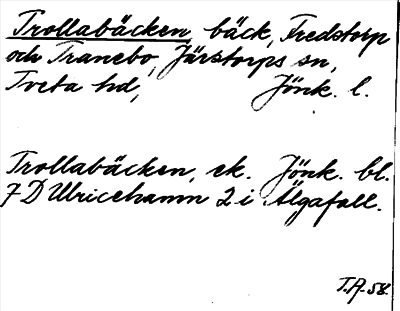 Trollabäcken, bäck, Fredstorp
och Tranebo, Järstorps sn,
Tveta hd, Jönk. l.
Trollabäcken, ek. Jönk. bl.
7 D Ulricehamn 2 i Älgafall.
T.A. 58.